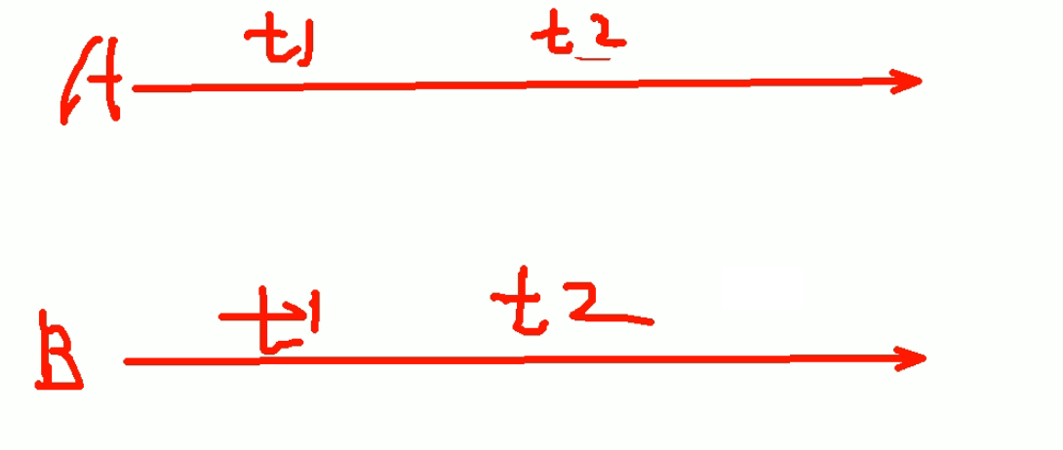 A t1 t2
B t1 t2